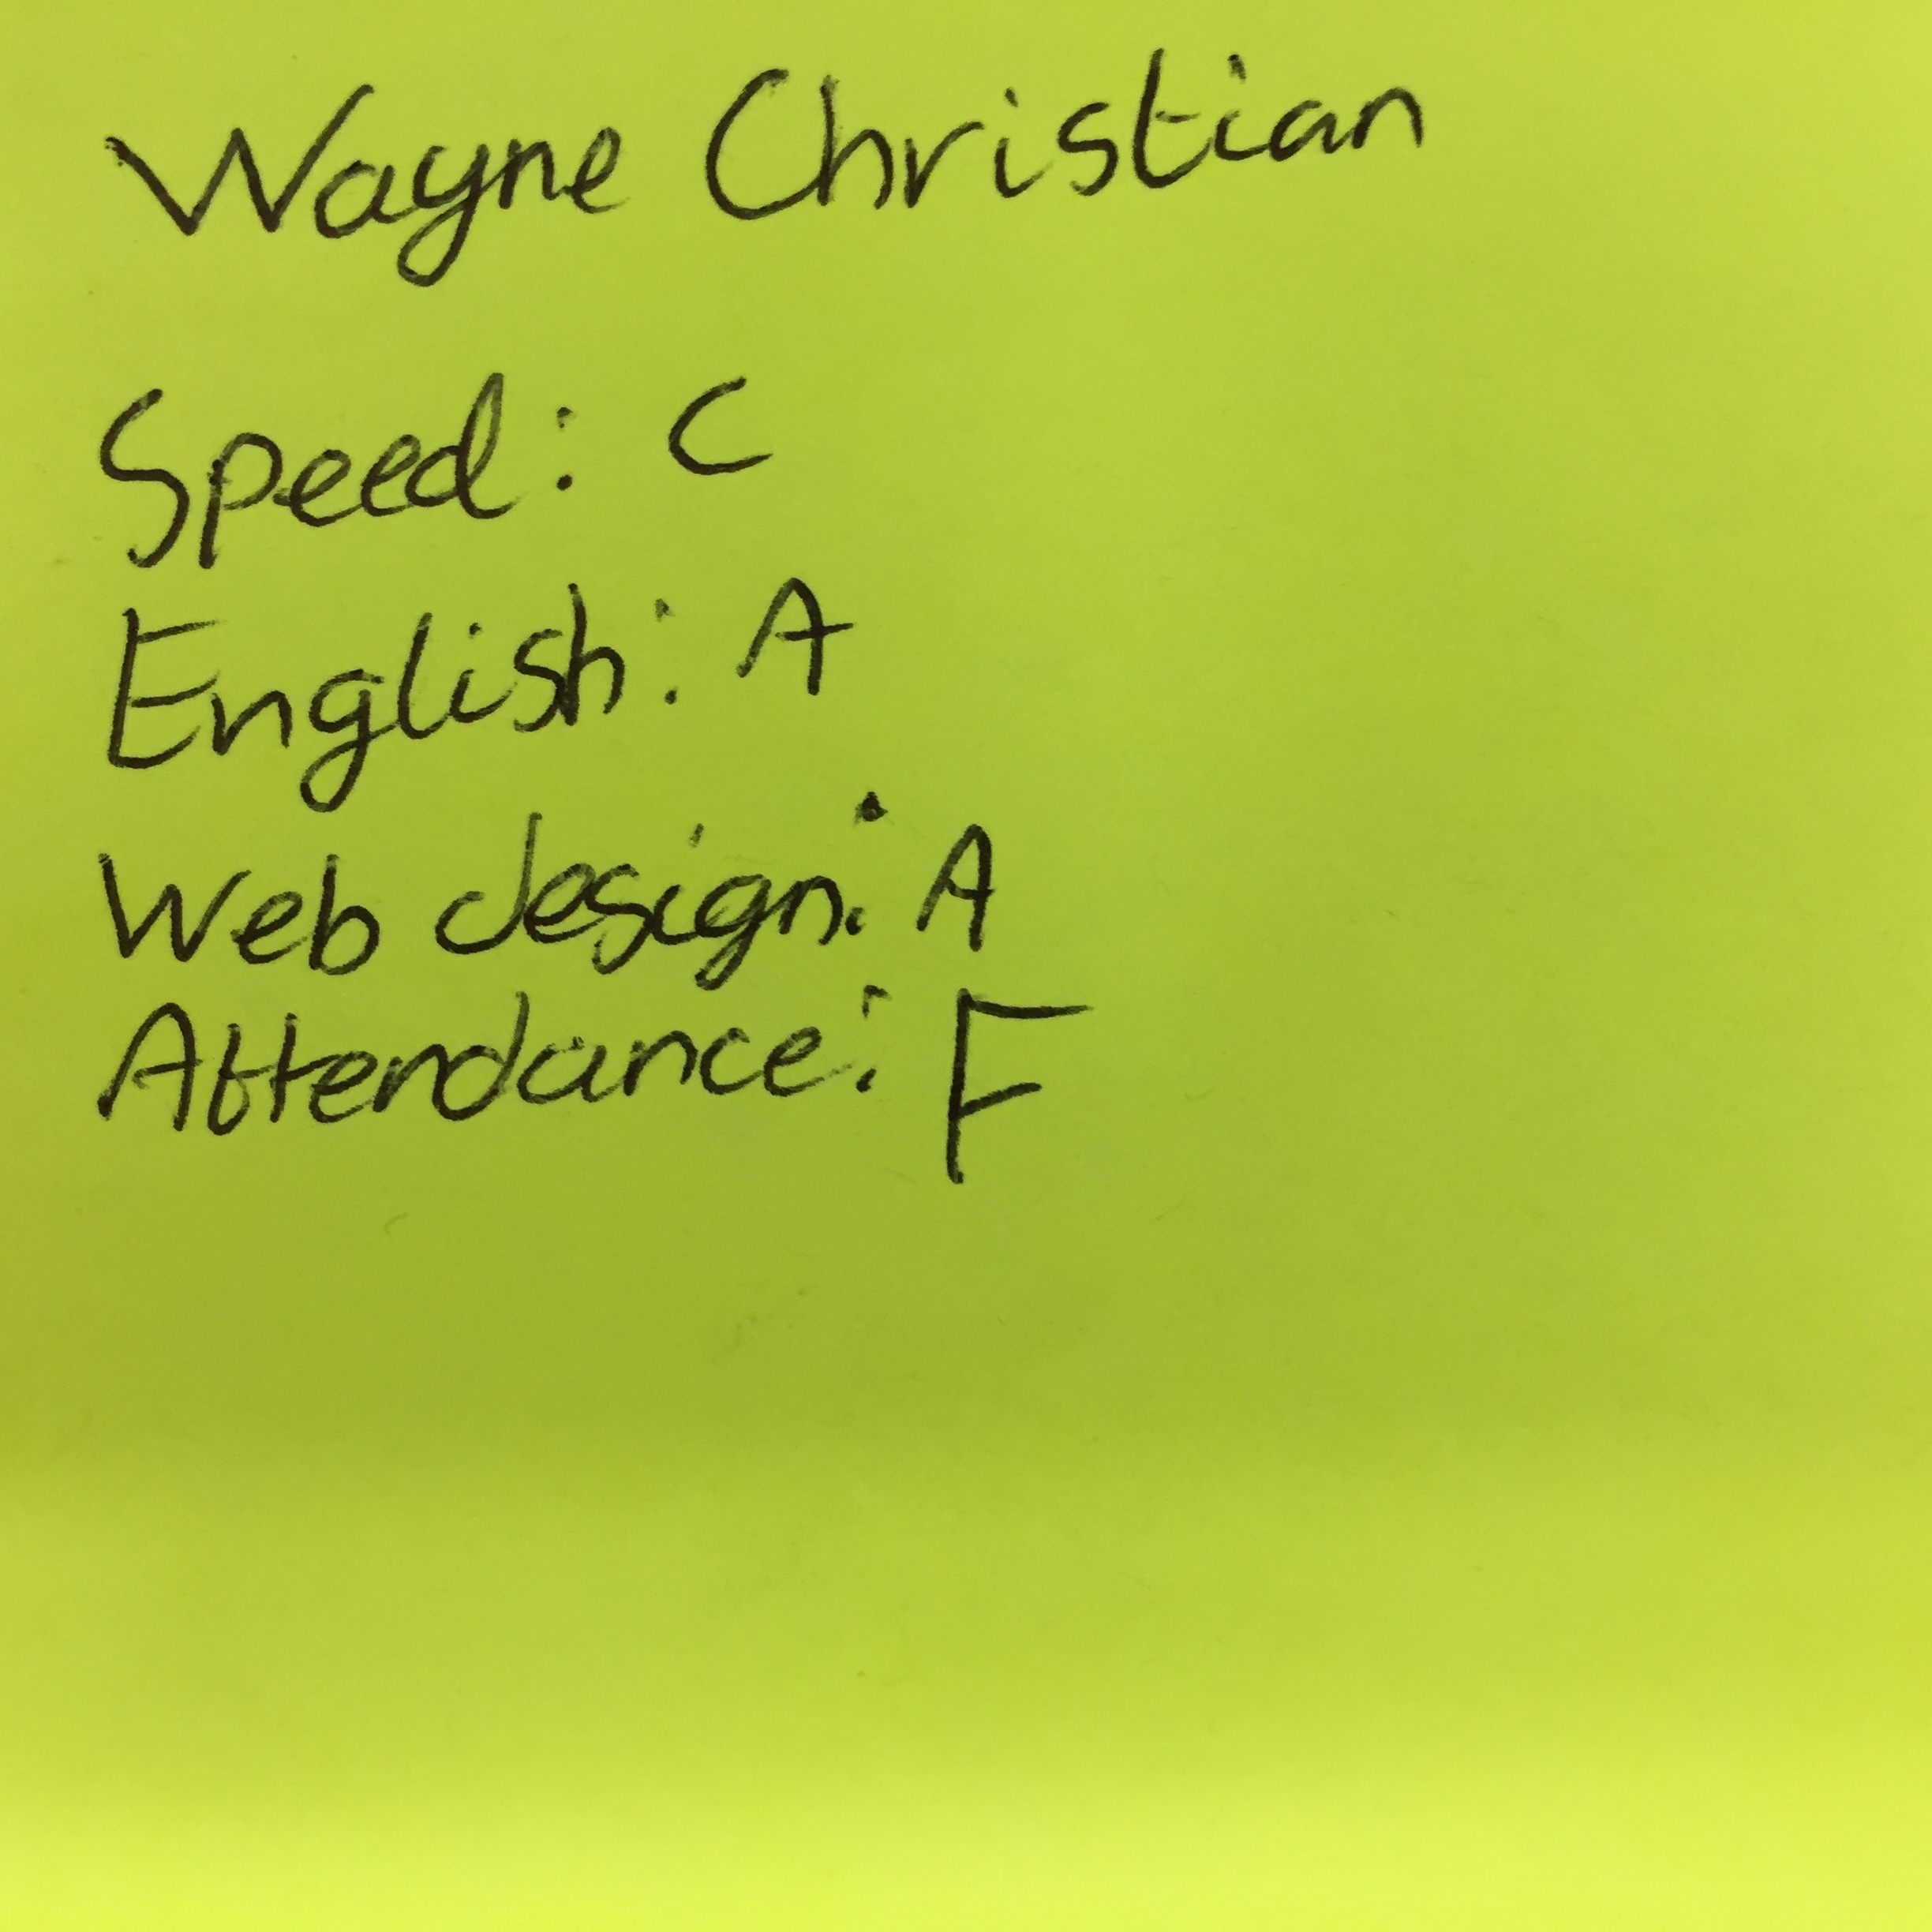 Wayne Christian
Speed: C
English: A
Web design: A
Attendance: F